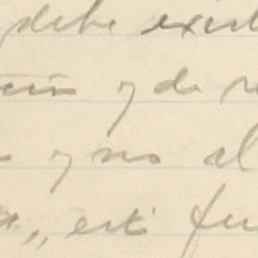 debe exist
ión y de re
y no al
", está fu